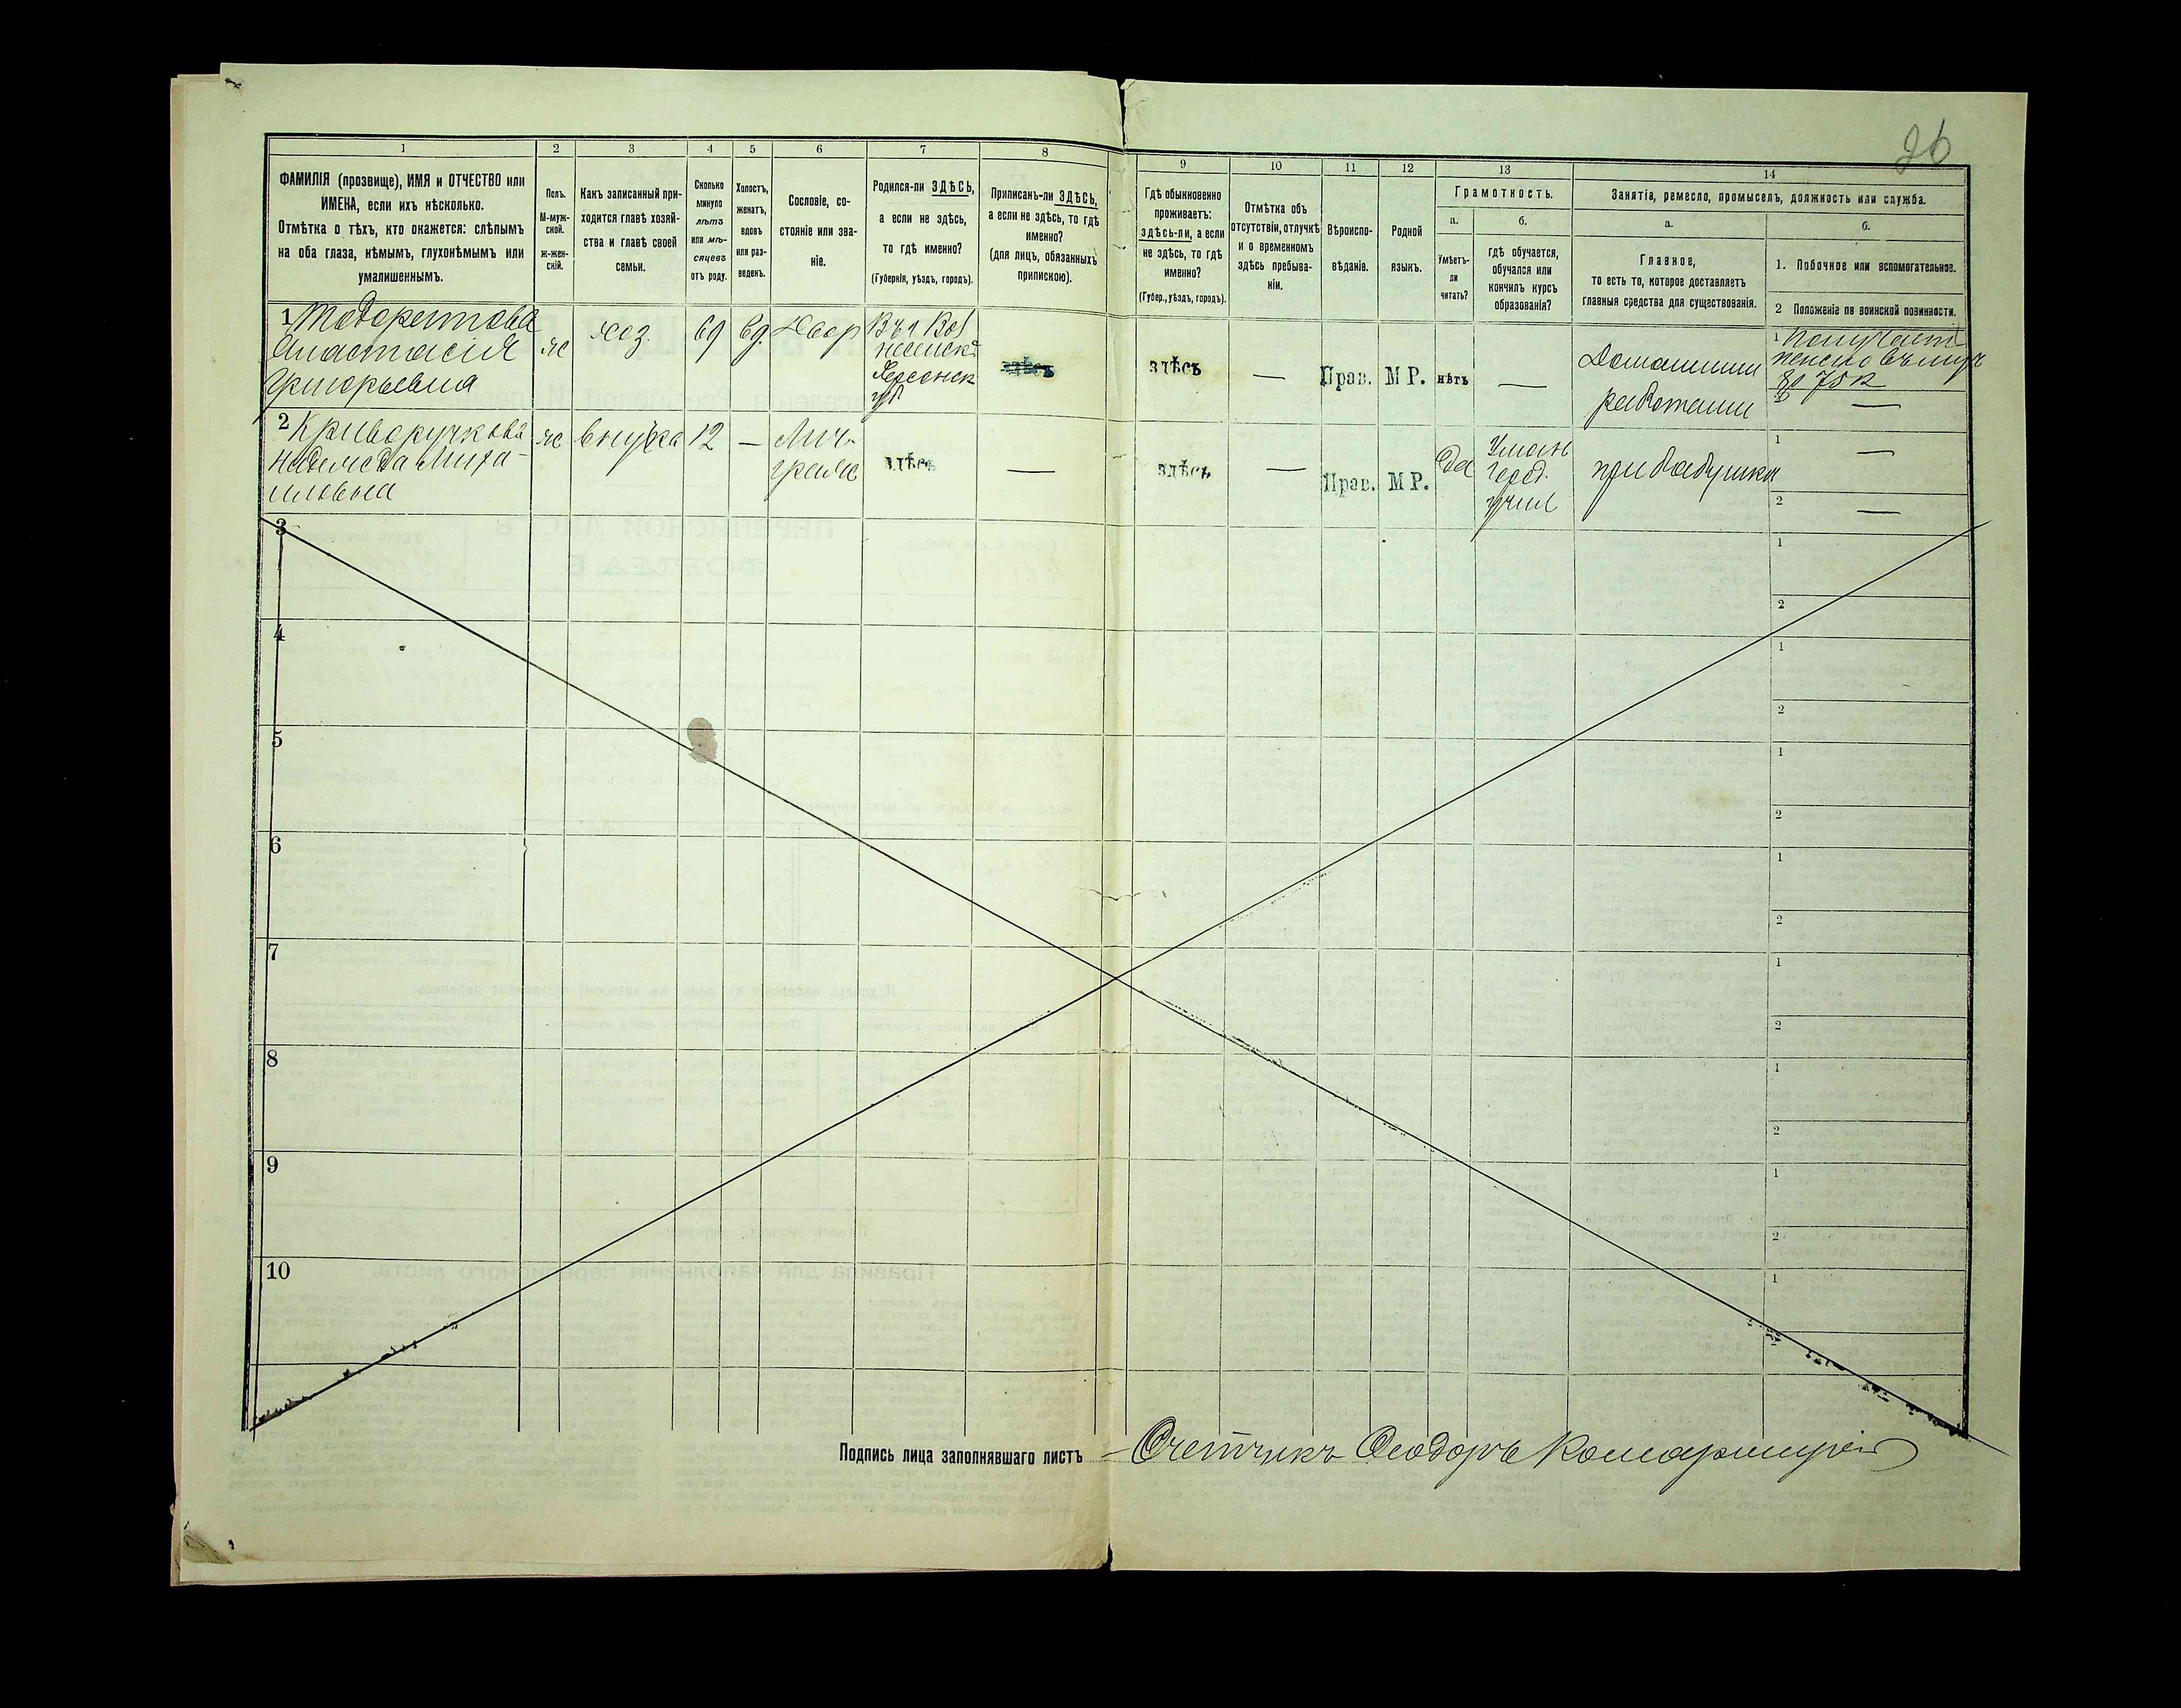 26
1 2 3 4 5 6 7 8 9 10 11 12 13 14
ФАМИЛІЯ (прозвище), ИМЯ и ОТЧЕСТВО или
ИМЕНА, если ихъ нѣсколько.
Отмѣтка о тѣхъ, кто окажется: слѣпымъ
на оба глаза, нѣмымъ, глухонѣмымъ или
умалишеннымъ.
Полъ.
М-муж-
ской.
ж-жен-
скій.
Какъ записанный при-
ходится главѣ хозяй-
ства и главѣ своей
семьи.
Сколько
минуло
лѣтъ
или мѣ-
сяцевъ
отъ роду.
Холостъ,
женатъ,
вдовъ
или раз-
веденъ.
Сословіе, со-
стояніе или зва-
ніе.
Родился-ли ЗДѢСЬ,
а если не здѣсь,
то гдѣ именно?
(Губернія, уѣздъ, городъ).
Приписанъ-ли ЗДѢСЬ,
а если не здѣсь, то гдѣ
именно?
(для лицъ, обязанныхъ
припискою).
Гдѣ обыкновенно
проживаетъ:
здѣсь-ли, а если
не здѣсь, то гдѣ
именно?
(Губер., уѣздъ, городъ).
Отмѣтка объ
отсутствіи, отлучкѣ
и о временномъ
здѣсь пребыва-
ніи.
Вѣроиспо-
вѣданіе.
Родной
языкъ.
Грамотность.
а.
Умѣетъ-
ли
читать?
б.
гдѣ обучается,
обучался или
кончилъ курсъ
образованія?
Занятія, ремесло, промыселъ, должность или служба.
а.
Главное,
то есть то, которое доставляетъ
главныя средства для существованія.
б.
1. Побочное или вспомогательное.
2 Положеніе по воинской повинности.
1
Анастасія
Григорьевна
ж
хоз.
69
вд.
Двор
Херсонск
губ
здѣсь
здѣсь
—
Прав.
М Р.
нѣтъ
—
Домашними
работами
1
75 к
2 —
2 Криворучкова
Надежда Миха-
иловна
ж
внучка
12
—
здѣсь
—
здѣсь
—
Прав.
М Р.
да
Уман
город.
учил
при бабушкѣ
1 —
2 —
3
1
2
4
1
2
5
1
2
6
1
2
7
1
2
8
1
2
9
1
2
10
1
2
Подпись лица заполнявшаго листъ Счетчикъ Ѳеодоръ